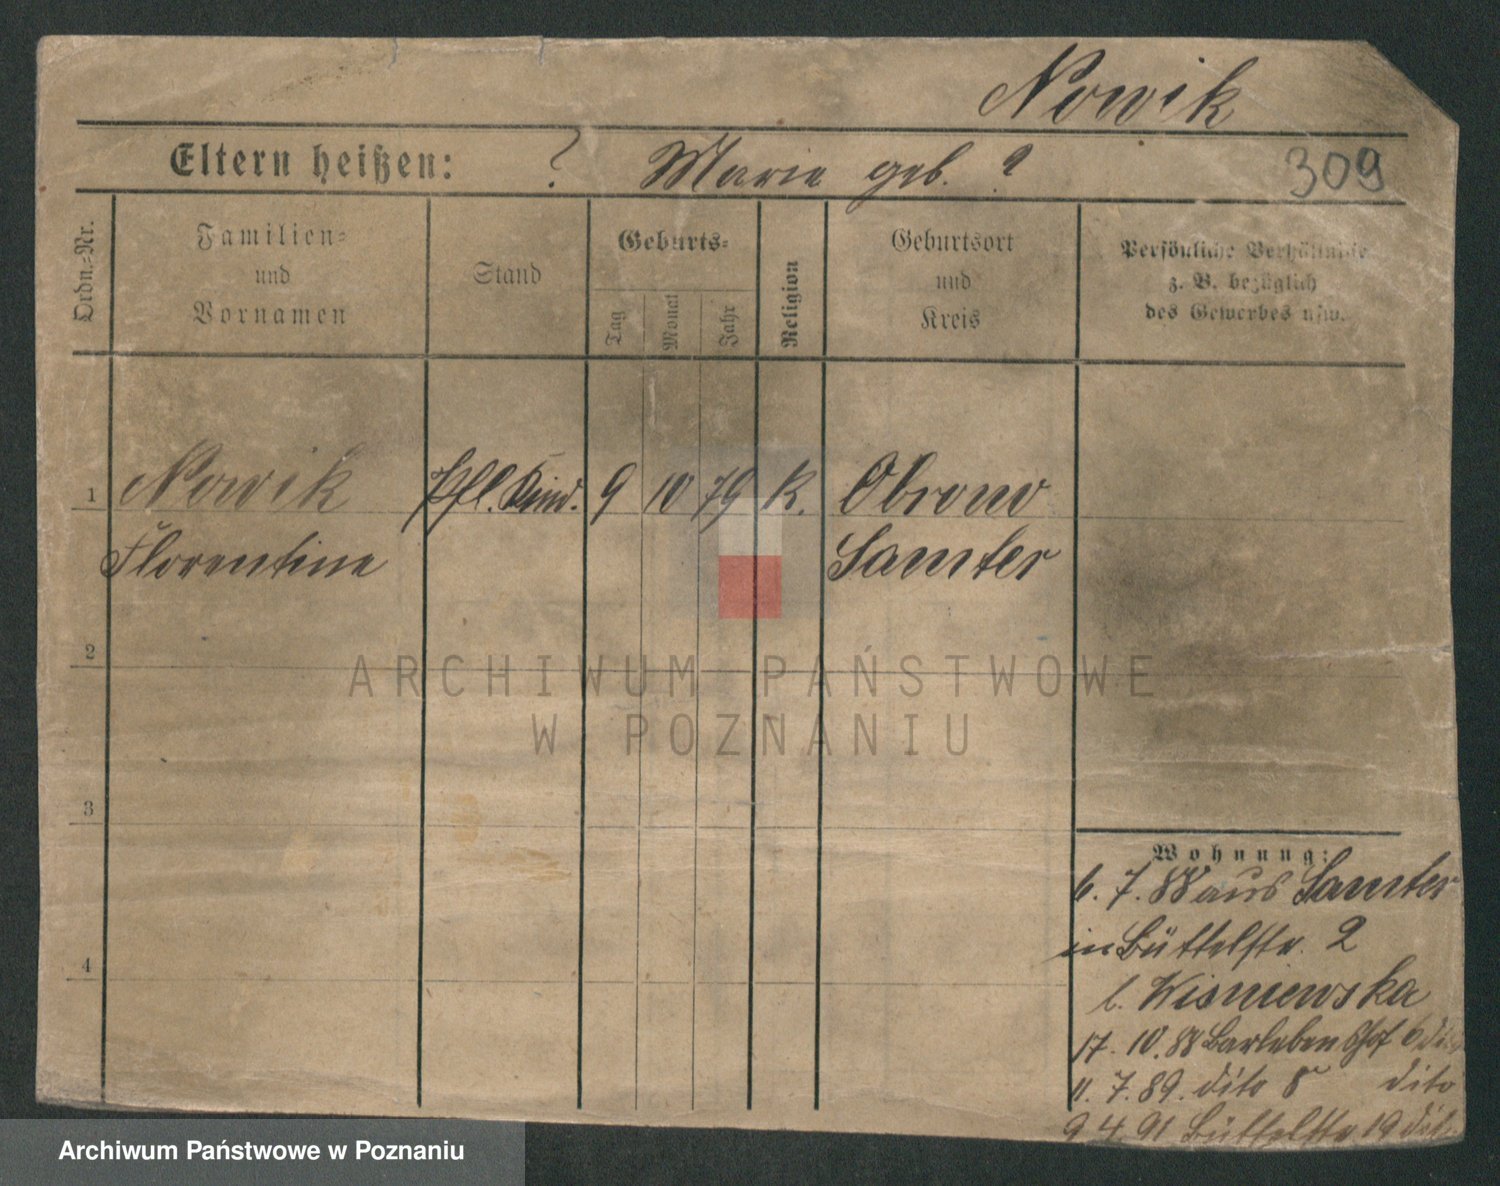 Nowik
Eltern heißen: ? Marie geb. ?
309
Ordn.-Nr.
Familien-
und
Vornamen
Stand
Geburts-
Tag
Monat
Jahr
Religion
Geburtsort
und
Kreis
Persönliche Verhältnisse
z. B. bezüglich
des Gewerbes usw.
1 Nowik Pfl. Kind. 9 10 79 K. Obrowo
Florentine Samter
2
3
4
Wohnung:
6. 7. 88 aus Samter
in Büttelstr. 2
b. Wisniewska
17. 10. 88 Barlebenshof 6 dito
11. 7. 89. dito 8 dito
9 4 91 Büttelstr 19 dito
ARCHIWUM PAŃSTWOWE
W POZNANIU
Archiwum Państwowe w Poznaniu